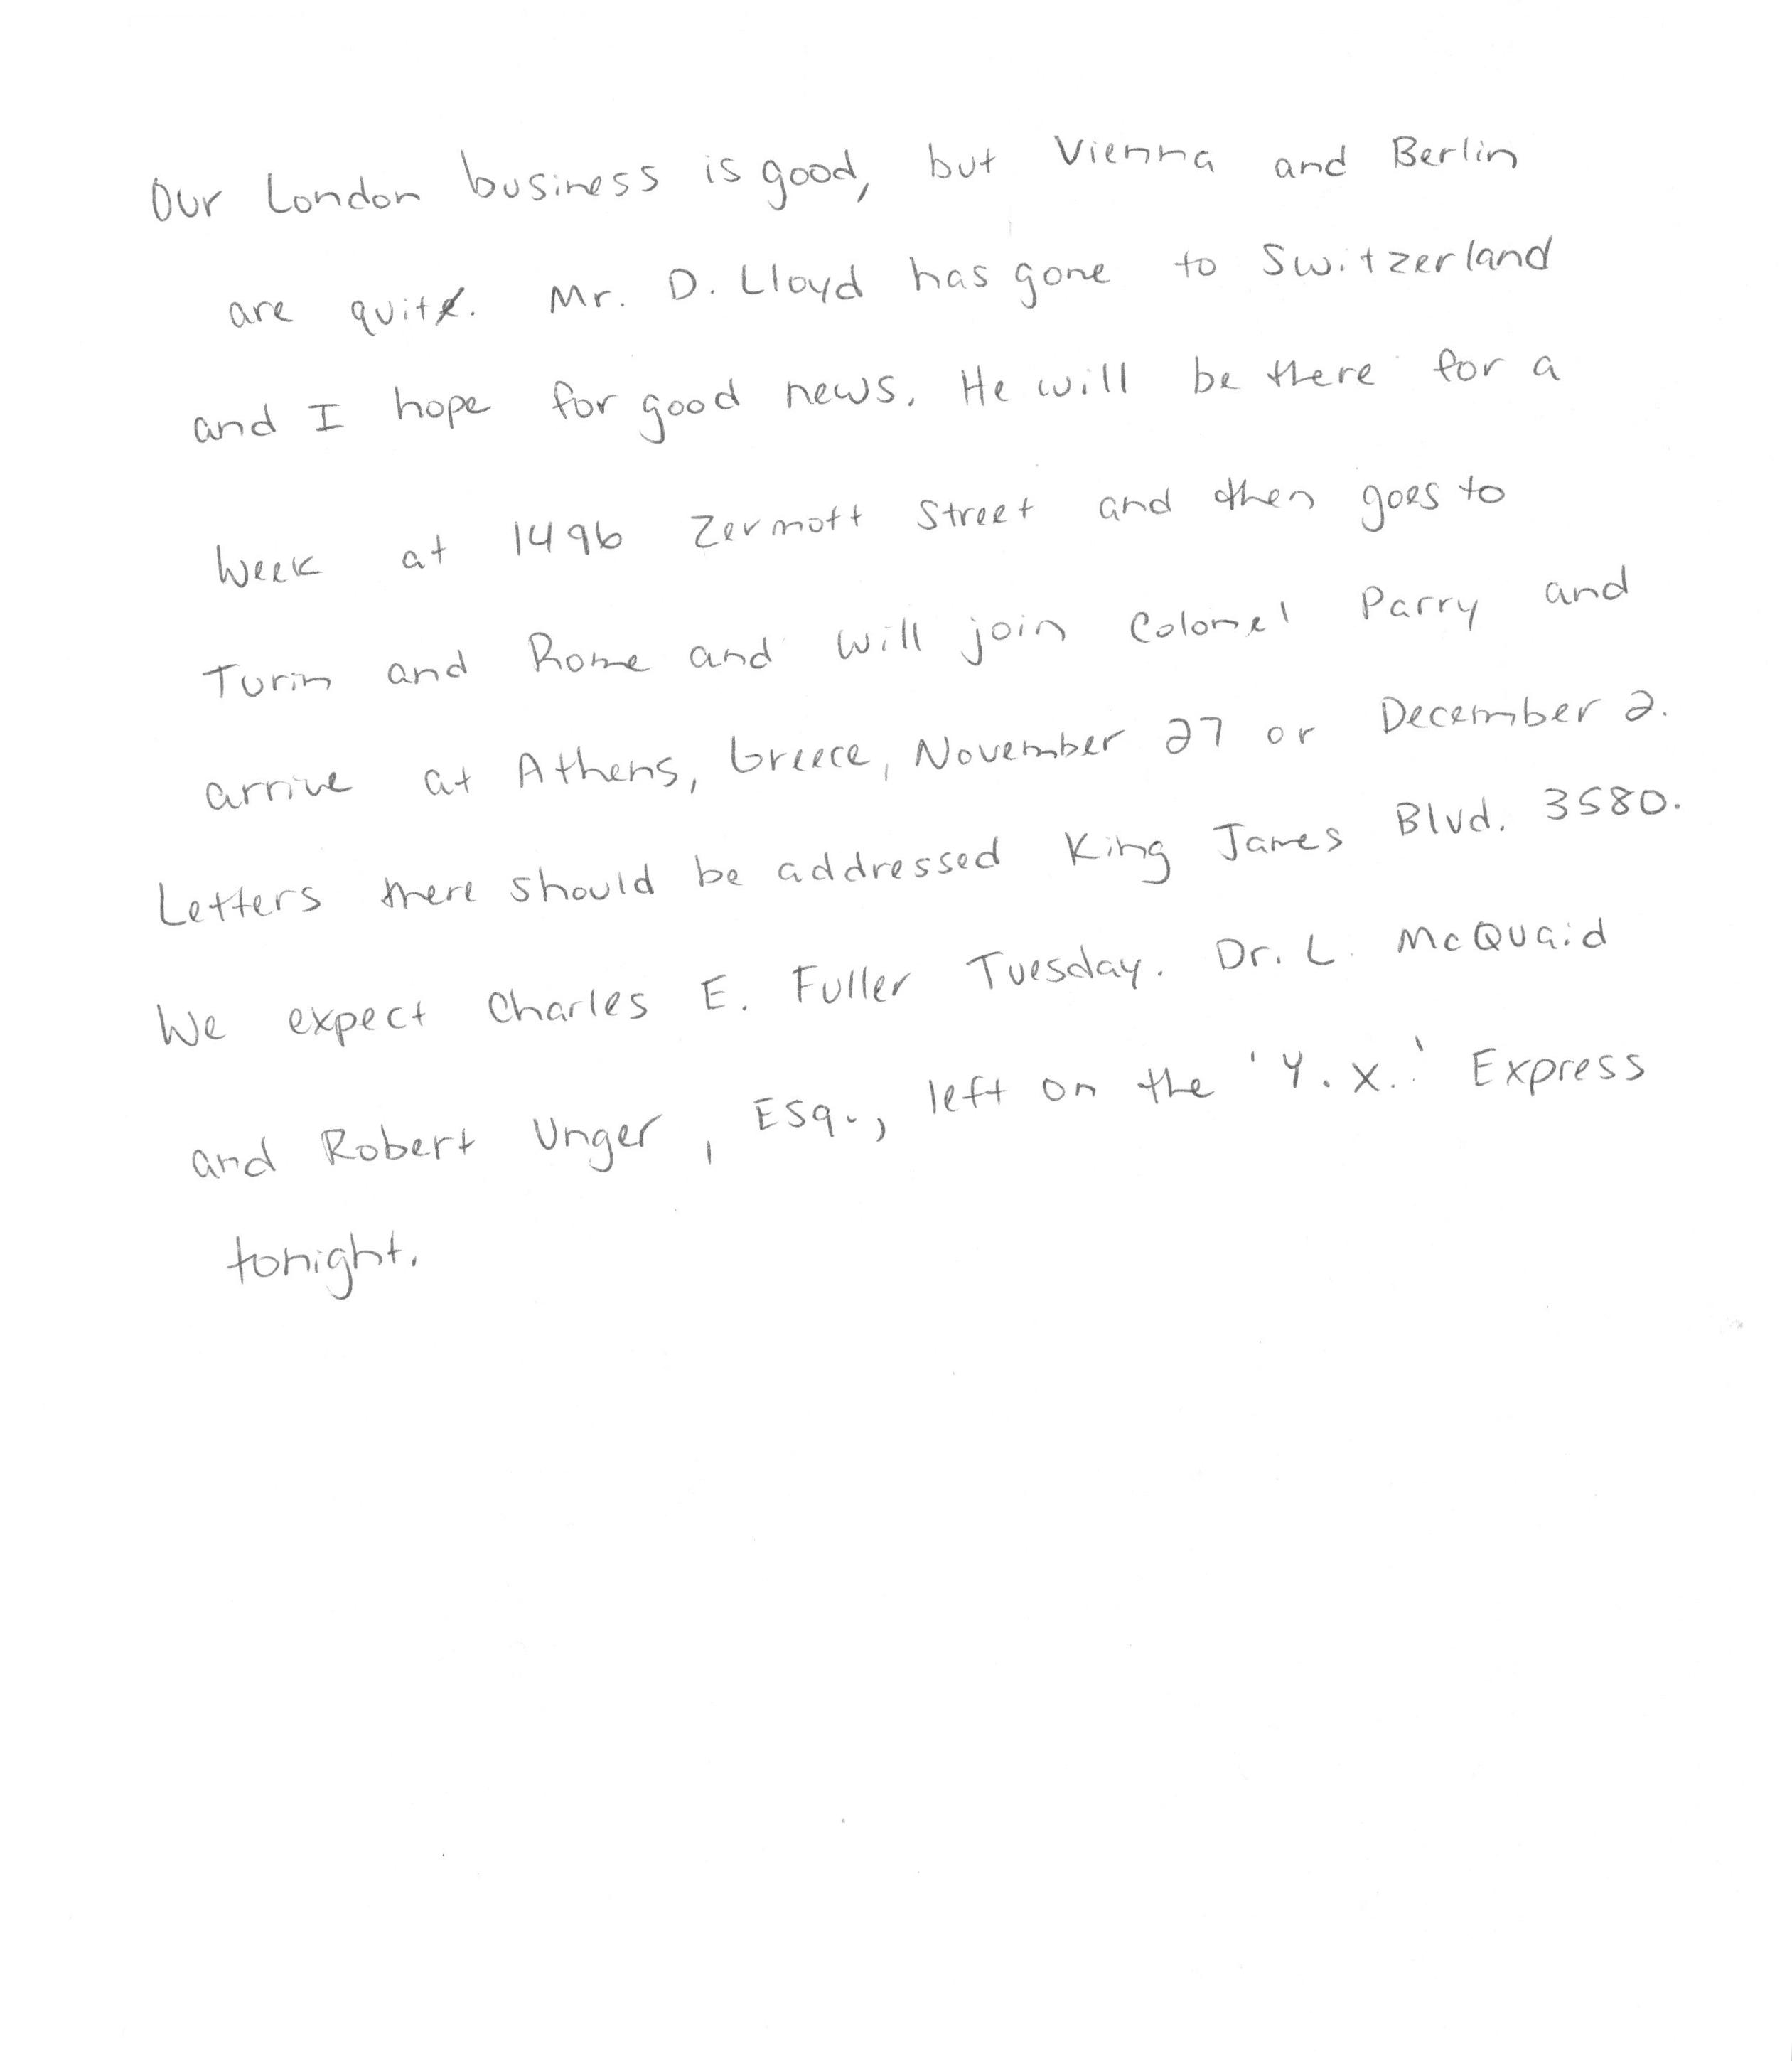 Our London business is good, but Vienna and Berlin
are quite. Mr. D. Lloyd has gone to Switzerland
and I hope for good news. He will be there for a
week at 1496 Zermott Street and then goes to
Turin and Rome and will join Colonel Parry and
arrive at Athens, Greece, November 27 or December 2.
Letters there should be addressed King James Blvd. 3580.
We expect Charles E. Fuller Tuesday. Dr. L. McQuaid
and Robert Unger, Esq., left on the 'Y.X.' Express
tonight.